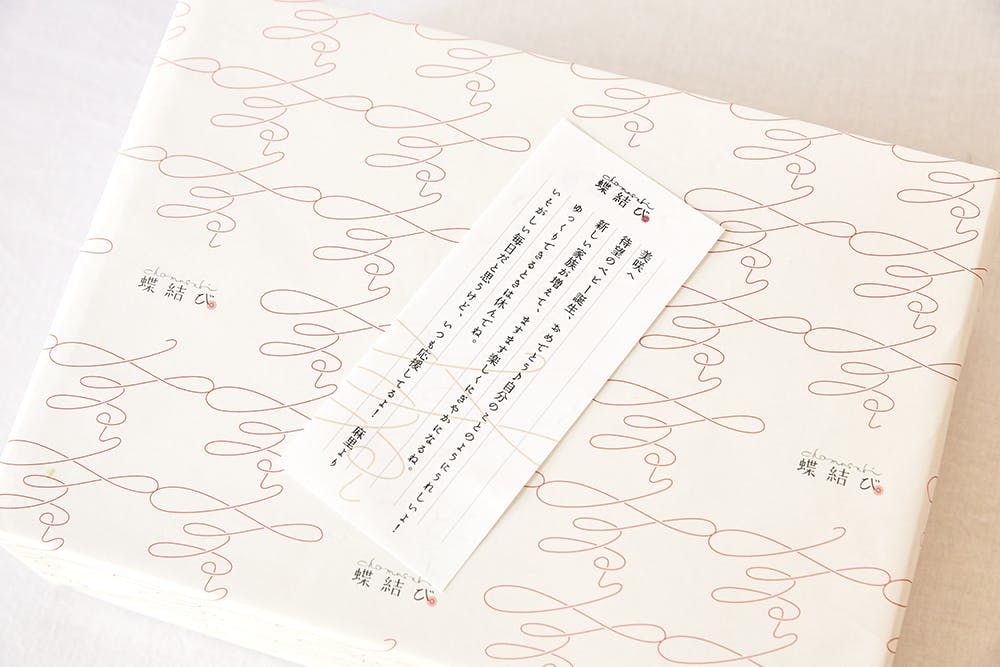 chomusubi
蝶結び
美咲へ
待望のベビー誕生、おめでとう♪自分のことのようにうれしいよ！
新しい家族が増えて、ますます楽しくにぎやかになるね。
ゆっくりできるときは休んでね。
いそがしい毎日だと思うけど、いつも応援してるよ！　麻里より
chomusubi
蝶結び
chomusubi
蝶結び
chomusubi
蝶結び